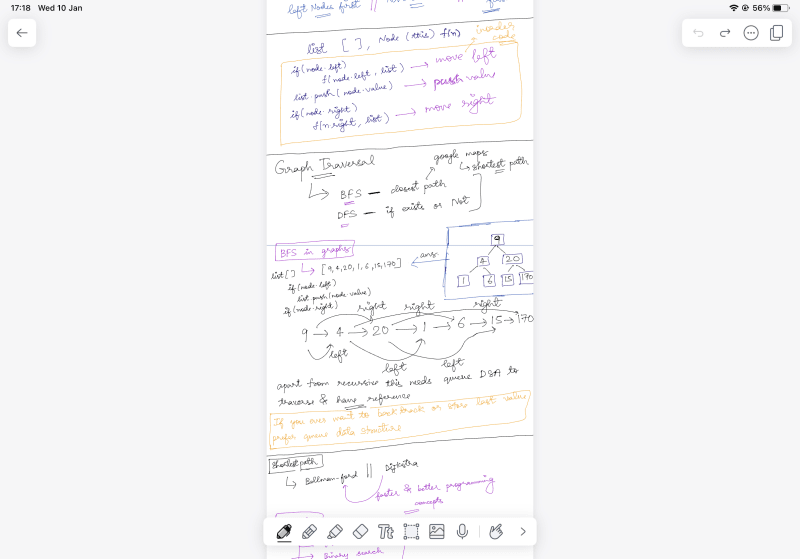 17:18 Wed 10 Jan
56%
left Nodes first ||
list [ ], Node (this) f(n)
inorder code
if(node.left)
f(node.left, list) → move left
list.push(node.value) → push value
if(node.right)
f(n.right, list) → move right
Graph Traversal
google maps
↳ shortest path
↳ BFS — closest path
DFS — if exists or Not
BFS in graphs
list[ ] ↳ [9,4,20,1,6,15,170]
ans
9
4 20
1 6 15 170
if(node.left)
list.push(node.value)
if(node.right)
right right right
9 → 4 → 20 → 1 → 6 → 15 → 170
left left left
apart from recursive this needs queue DSA to
traverse & have reference
If you ever want to back track or store last value
prefer queue data structure
Shortest path
↳ Bellman-ford || Dijkstra
faster & better programming
concepts
Tt
Binary search